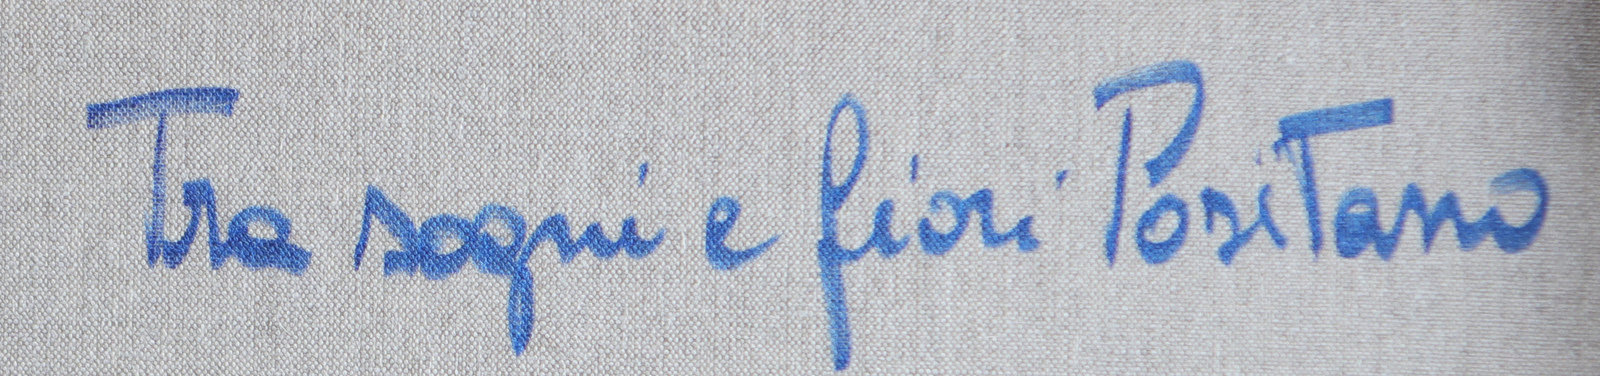 Tra sogni e fiori Positano